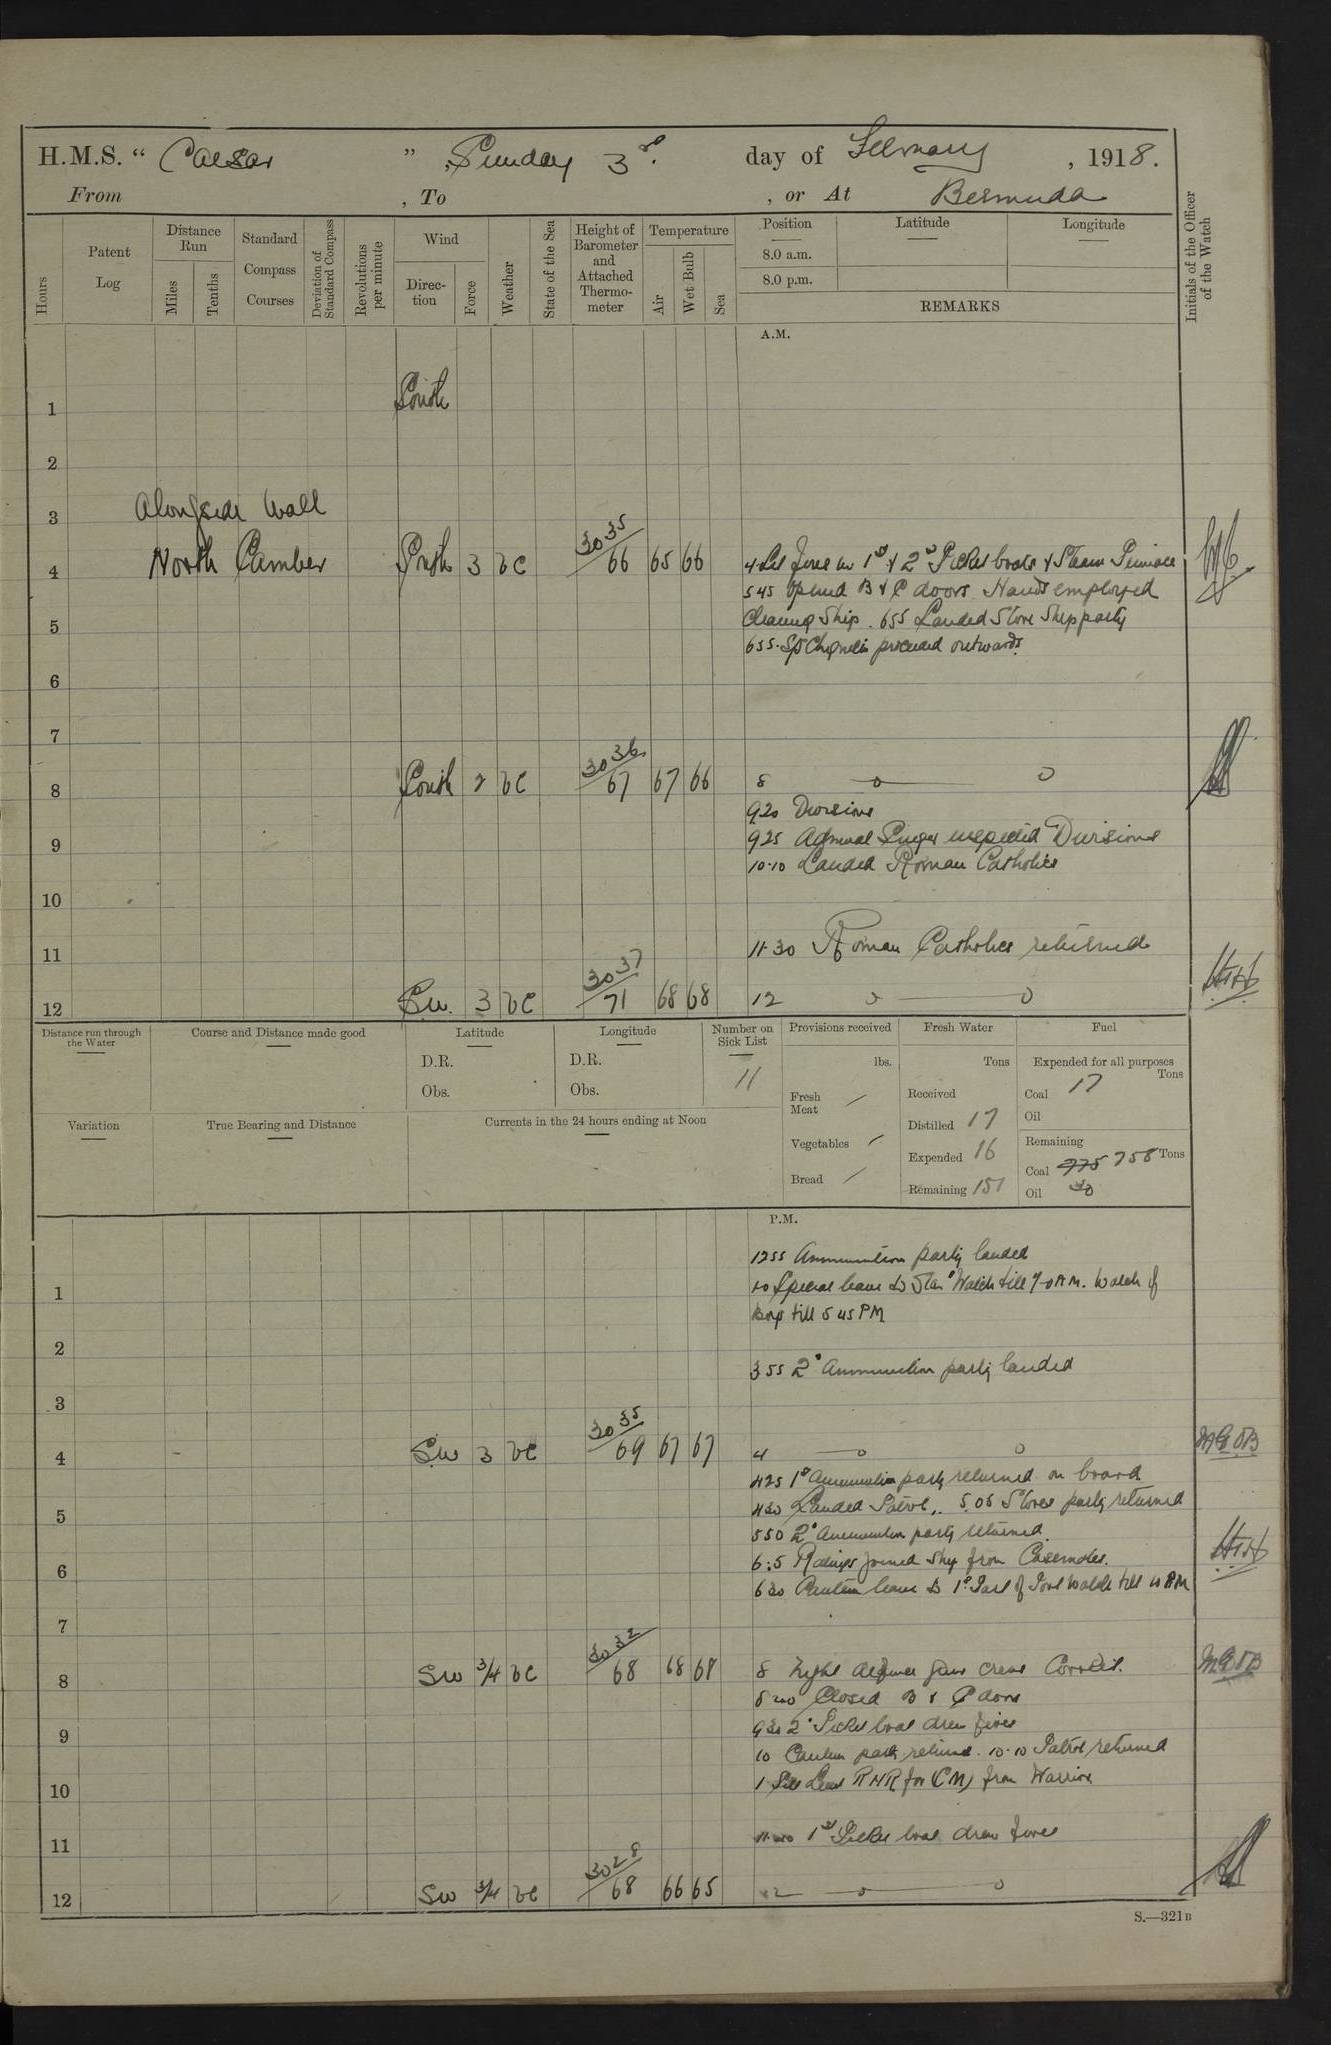 H.M.S. " Caesar " Sunday 3rd. day of February, 1918.
From , To , or At Bermuda
Hours
Patent Log
Distance Run
Miles
Tenths
Standard Compass Courses
Deviation of Standard Compass
Revolutions per minute
Wind
Direction
Force
Weather
State of the Sea
Height of Barometer and Attached Thermometer
Temperature
Air
Wet Bulb
Sea
Position
8.0 a.m.
8.0 p.m.
Latitude
Longitude
REMARKS
Initials of the Officer of the Watch
A.M.
1 South
2
3 Alongside Wall
4 North Camber South 3 bc 3035/66 65 66 4 Lit fires in 1st & 2nd Picket boats & Steam Pinnace
545 Opened B & C doors Hands employed
5 Cleaning Ship. 655 Landed Store Ship party
655. proceed outwards.
6
7
8 South 2 bc 3036/67 67 66 8
920 Divisions
9 925 Admiral inspected Divisions
10.10 Landed Roman Catholics
10
11 11.30 Roman Catholics returned
12 SW. 3 bc 3037/71 68 68 12
Distance run through the Water
Course and Distance made good
Latitude
D.R.
Obs.
Longitude
D.R.
Obs.
Number on Sick List
11
Provisions received
lbs.
Fresh Meat /
Vegetables /
Bread /
Fresh Water
Tons
Received
Distilled 17
Expended 16
Remaining 151
Fuel
Expended for all purposes
Tons
Coal 17
Oil
Remaining
Coal 775 758 Tons
Oil 30
Variation
True Bearing and Distance
Currents in the 24 hours ending at Noon
P.M.
1255 Ammunition party landed
1 Special leave to Watch till 7-0 AM. Watch of
Boys till 5 45 PM
2
355 2nd Ammunition party landed
3
4 SW 3 bc 3035/69 67 67 4
425 1st Ammunition party returned on board
430 Landed Patrol, 5.05 Stores party returned
5
550 2nd Ammunition party returned
6 6.5 Ratings joined Ship from Casemates.
630 Canteen leave to 1st Part of Port Watch till 10 PM
7
8 SW 3/4 bc 3032/68 68 67 8
Closed B & C doors
9 930 2nd Picket boat drew fires
10 Canteen party returned. 10.10 Patrol returned
10 1 RNR for (CM) from Warrior
11 1st Picket boat drew fires
12 SW 3/4 bc 3028/68 66 65 12
S.—321B